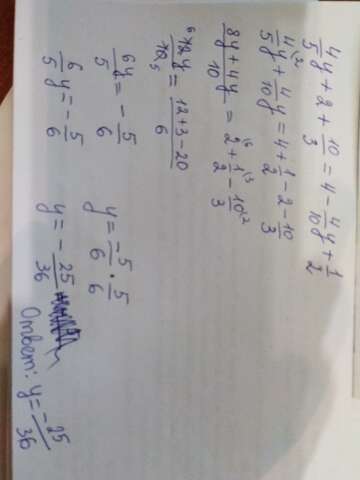 4/5 y + 2 + 10/3 = 4 - 4/10 y + 1/2
4/5 y ^2 + 4/10 y = 4 + 1/2 - 2 - 10/3
8y+4y/10 = 2 ^6 + 1/2 ^3 - 10/3 ^2
6 12 y/10 5 = 12+3-20/6
6y/5 = - 5/6
6/5 y = - 5/6
y = -5/6 · 5/6
y = - 25/36
Ответ: y = -25/36